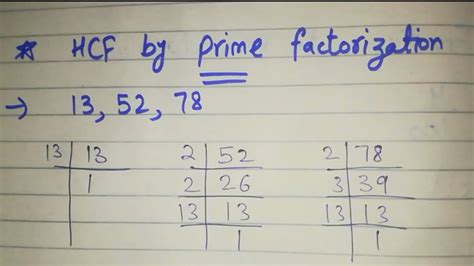 * HCF by prime factorization
→ 13, 52, 78
13 | 13 2 | 52 2 | 78
1 2 | 26 3 | 39
13 | 13 13 | 13
1 1